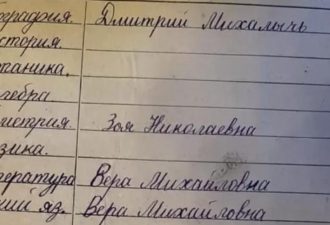 ография. Дмитрий Михалычь
стория.
таника.
гебра
метрия. Зоя Николаевна
изика.
ература Вера Михайловна
ий яз. Вера Михайловна